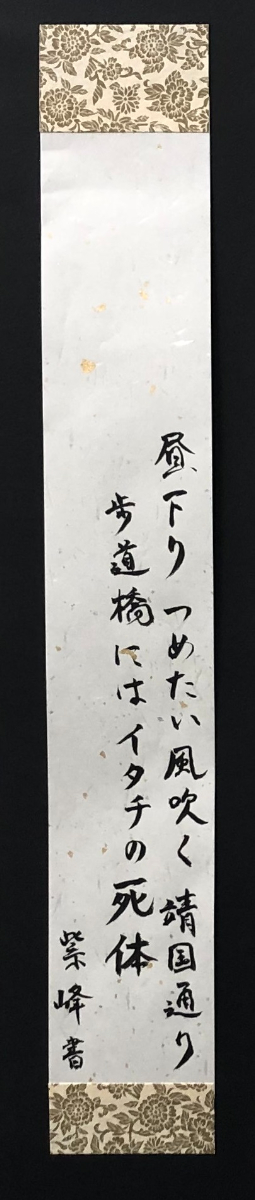 昼下りつめたい風吹く靖国通り
歩道橋にはイタチの死体
紫峰書